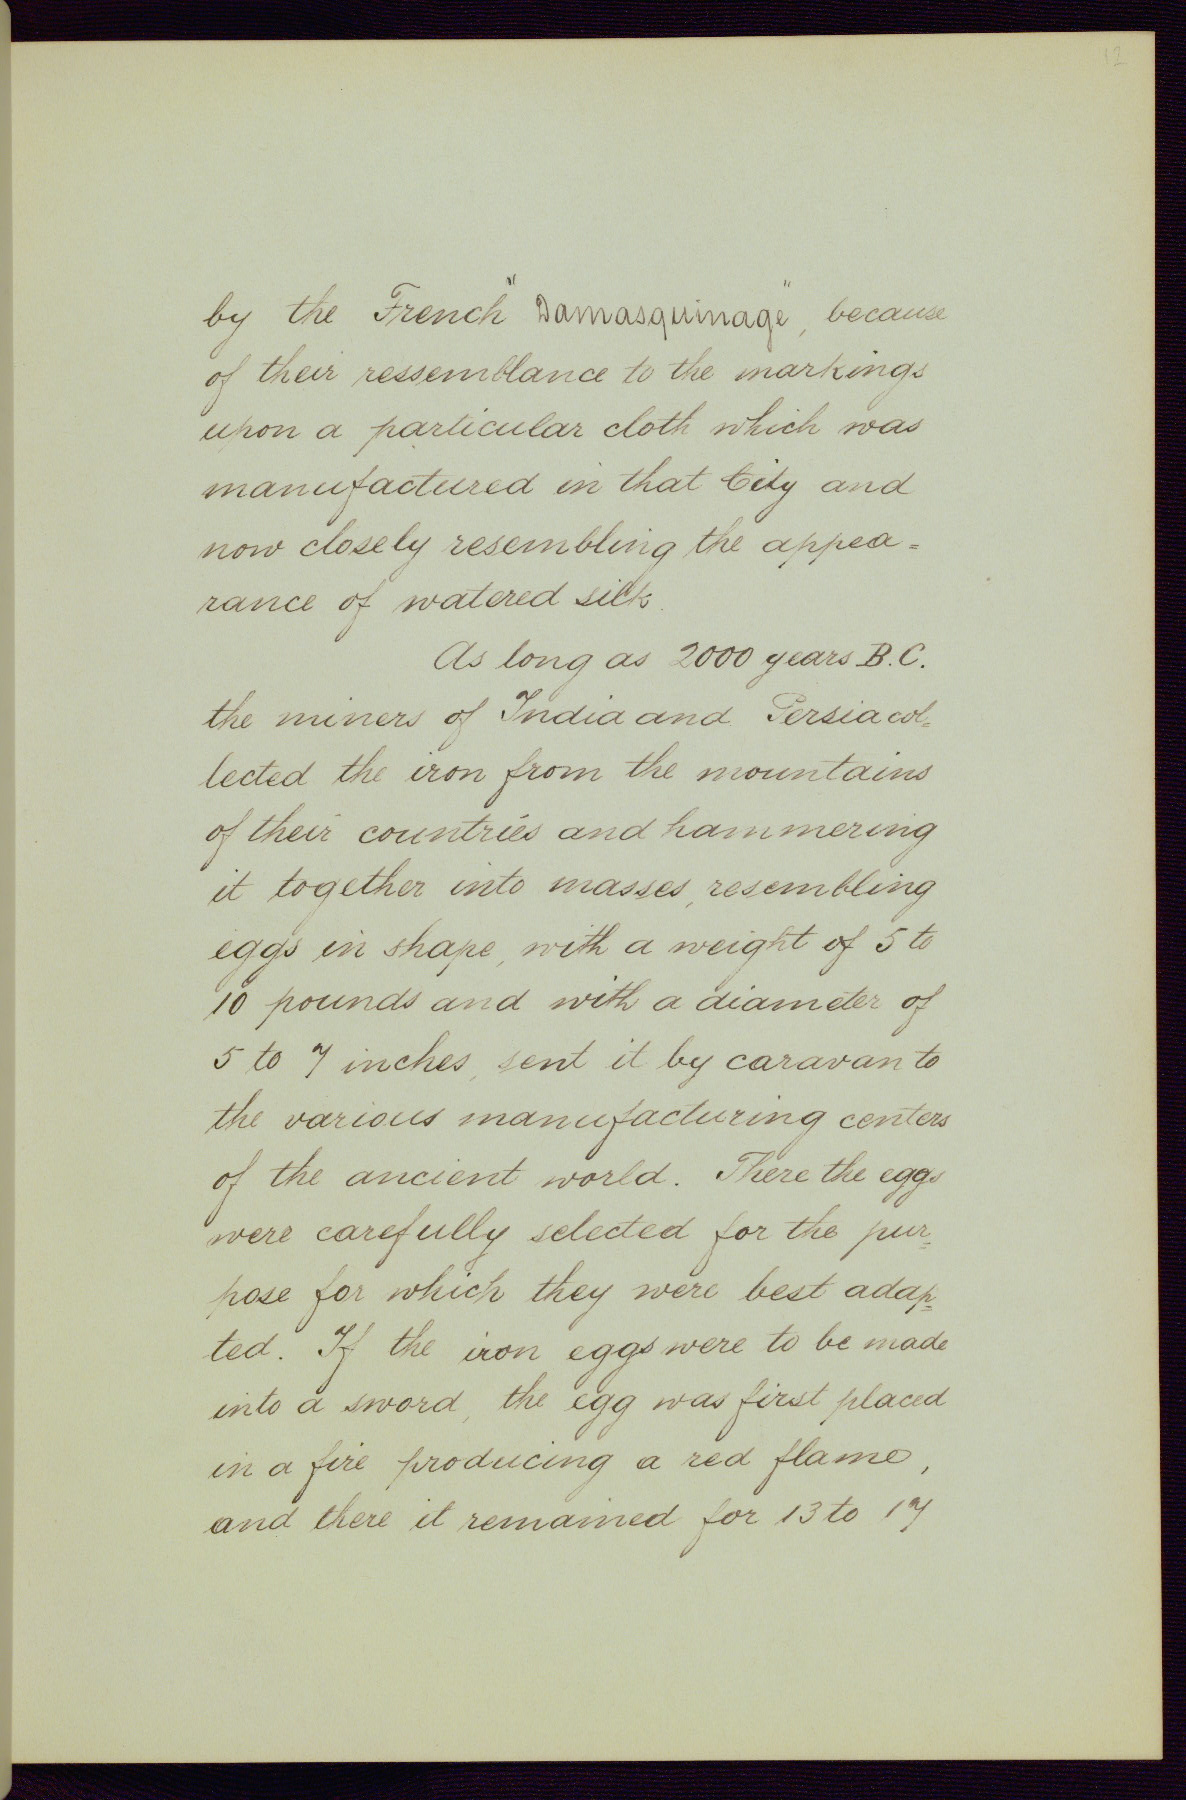 12
by the French "Damasquinage", because
of their ressemblance to the markings
upon a particular cloth which was
manufactured in that City and
now closely resembling the appea=
rance of watered silk.
As long as 2000 years B.C.
the miners of India and Persia col=
lected the iron from the mountains
of their countries and hammering
it together into masses, resembling
eggs in shape, with a weight of 5 to
10 pounds and with a diameter of
5 to 7 inches, sent it by caravan to
the various manufacturing centers
of the ancient world. There the eggs
were carefully selected for the pur=
pose for which they were best adap=
ted. If the iron eggs were to be made
into a sword, the egg was first placed
in a fire producing a red flame,
and there it remained for 13 to 17